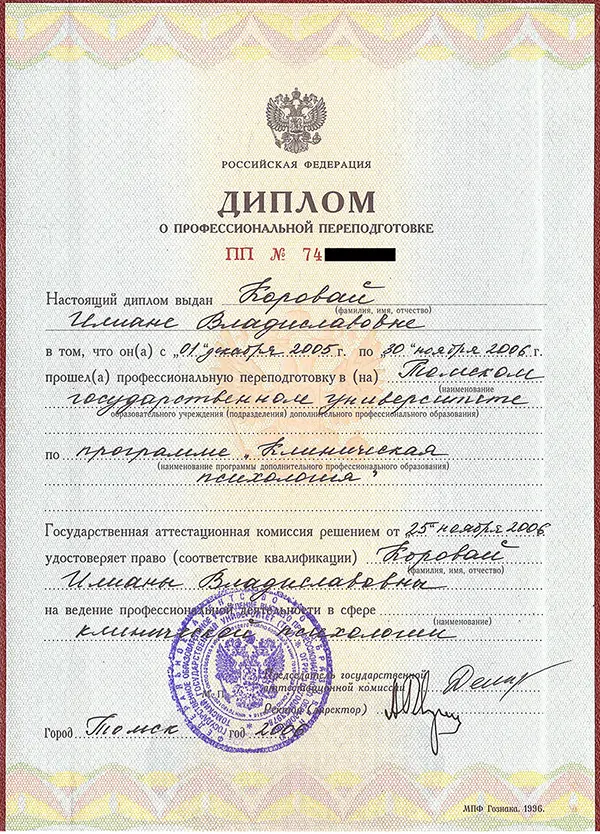 РОССИЙСКАЯ ФЕДЕРАЦИЯ
ДИПЛОМ
О ПРОФЕССИОНАЛЬНОЙ ПЕРЕПОДГОТОВКЕ
ПП № 74
Настоящий диплом выдан Коровай
(фамилия, имя, отчество)
Илиане Владиславовне
в том, что он(а) с „01" декабря 2005 г. по 30 "ноября 2006 г.
прошел(а) профессиональную переподготовку в (на) Томском
(наименование
государственном университете
образовательного учреждения (подразделения) дополнительного профессионального образования)
по программе „Клиническая
(наименование программы дополнительного профессионального образования)
психология"
Государственная аттестационная комиссия решением от „25" ноября 2006
удостоверяет право (соответствие квалификации) Коровай
(фамилия, имя, отчество)
Илианы Владиславовны
на ведение профессиональной деятельности в сфере
(наименование)
клинической психологии
Председатель государственной
аттестационной комиссии
Ректор (директор)
Город Томск год 2006
МПФ Гознака. 1996.